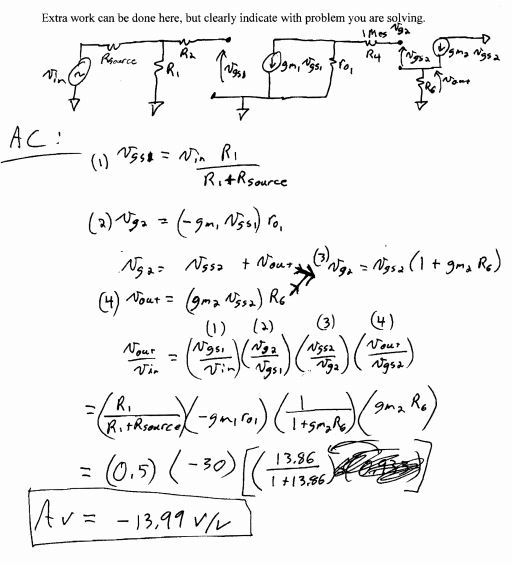 Extra work can be done here, but clearly indicate with problem you are solving.
Vin Rsource R1 R2 vgs1 gm1 vgs1 ro1 1Meg R4 vg2 vgs2 gm2 vgs2 R6 vout
AC:
(1) vgs1 = vin R1 / (R1 + Rsource)
(2) vg2 = (-gm1 vgs1) ro1
vg2 = vgs2 + vout (3) vg2 = vgs2 (1 + gm2 R6)
(4) vout = (gm2 vgs2) R6
(1) (2) (3) (4)
vout/vin = (vgs1/vin) (vg2/vgs1) (vgs2/vg2) (vout/vgs2)
= (R1/(R1+Rsource)) (-gm1 ro1) (1/(1+gm2R6)) (gm2 R6)
= (0.5) (-30) [(13.86/(1+13.86))]
Av = -13.99 V/V